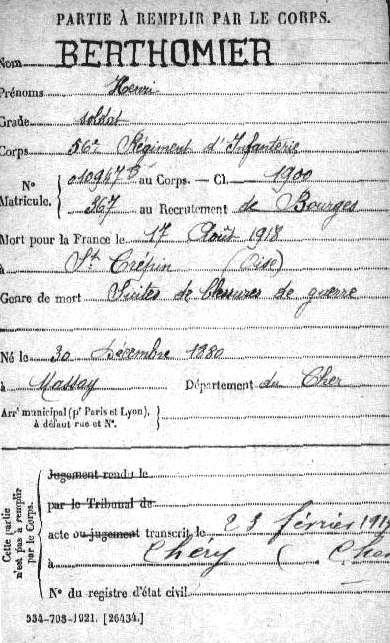 PARTIE À REMPLIR PAR LE CORPS.
Nom BERTHOMIER
Prénoms Henri
Grade soldat
Corps 56e Régiment d'Infanterie
N° Matricule. 010947 au Corps. — Cl. 1900
367 au Recrutement de Bourges
Mort pour la France le 17 Août 1918
à St Crépin (Oise)
Genre de mort Suites de blessures de guerre
Né le 30 Décembre 1880
à Massay Département du Cher
Arrt municipal (pr Paris et Lyon), à défaut rue et N°.
Cette partie n'est pas à remplir par le Corps.
Jugement rendu le
par le Tribunal de
acte ou jugement transcrit le 23 février 1919
à Chéry (Cher
N° du registre d'état civil
534-708-1921. [26434.]